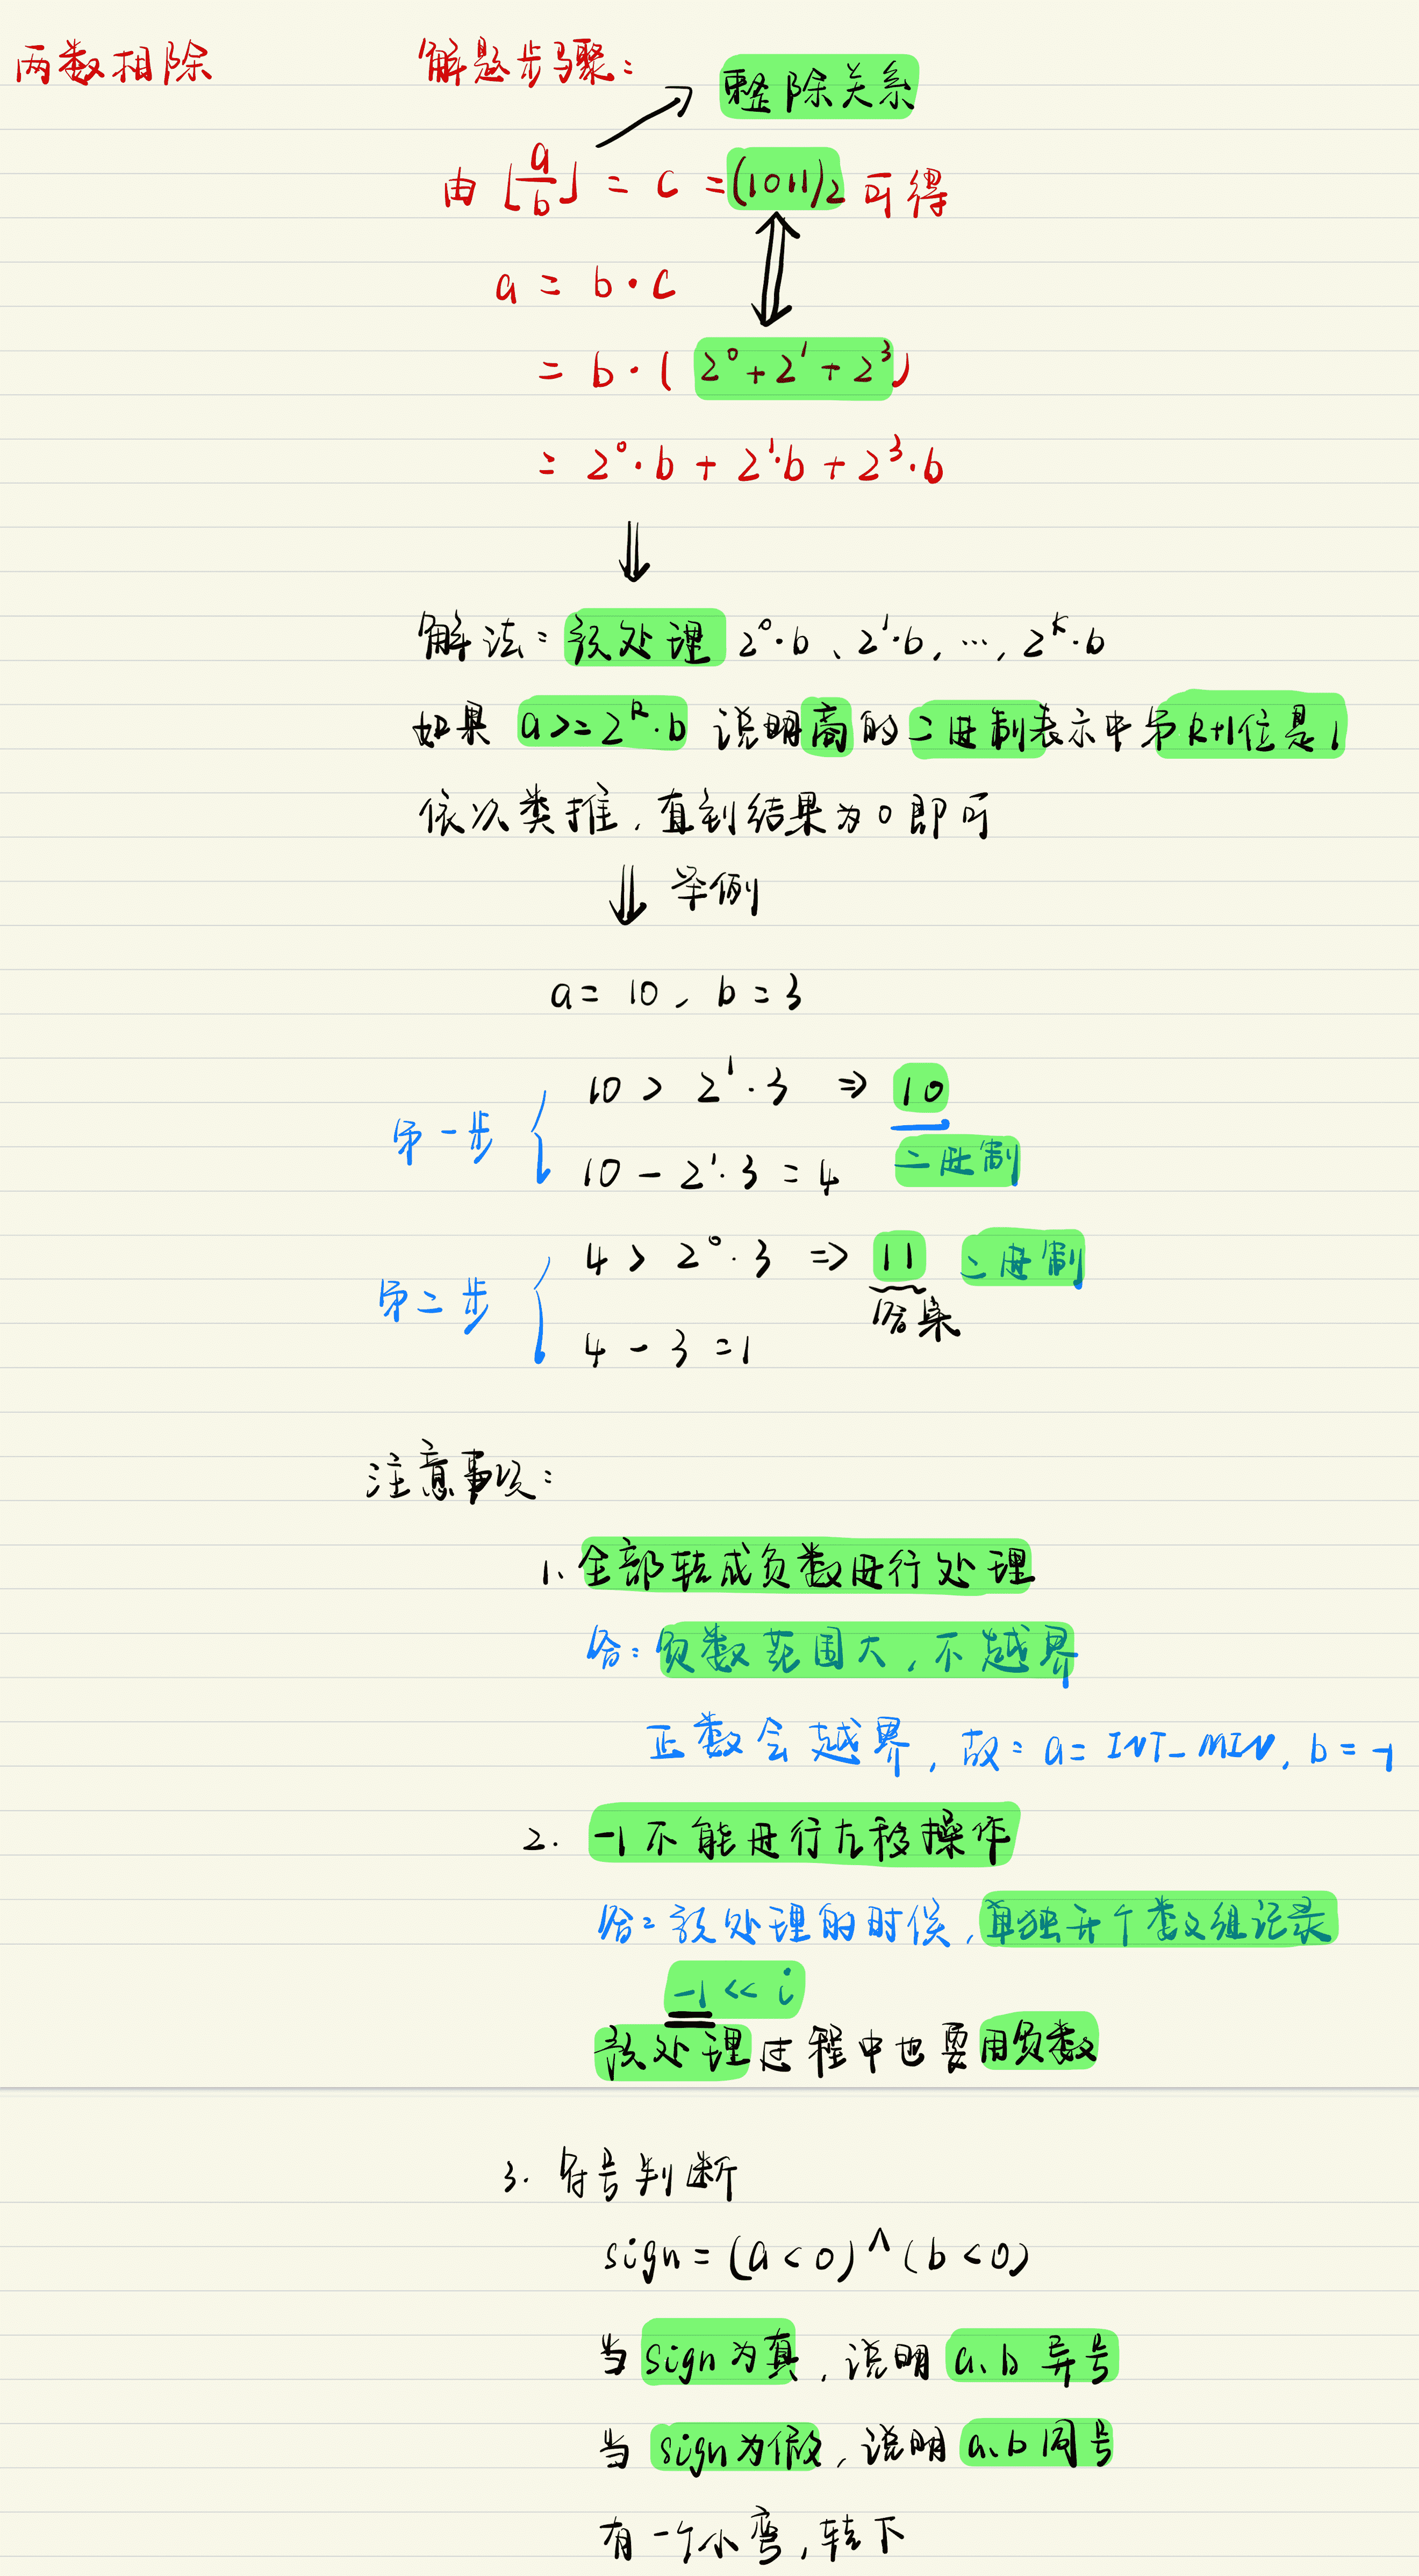 两数相除
解题步骤：
整除关系
由 ⌊a/b⌋ = c = (1011)₂ 可得
a = b · c
= b · ( 2⁰ + 2¹ + 2³ )
= 2⁰·b + 2¹·b + 2³·b
⇓
解法：预处理 2⁰·b、2¹·b, …, 2ᵏ·b
如果 a >= 2ᵏ·b 说明商的二进制表示中第k+1位是1
依次类推，直到结果为0即可
⇓ 举例
a = 10, b = 3
10 > 2¹·3 ⇒ 10
第一步
10 - 2¹·3 = 4 二进制
4 > 2⁰·3 ⇒ 11 二进制
第二步
答案
4 - 3 = 1
注意事项：
1、全部转成负数进行处理
答：负数范围大，不越界
正数会越界，故：a = INT_MIN, b = -1
2. -1不能进行左移操作
答：预处理的时候，单独开个数组记录
-1 << i
预处理过程中也要用负数
3. 符号判断
sign = (a < 0) ^ (b < 0)
当 sign为真，说明 a、b 异号
当 sign为假，说明 a、b 同号
有一个小弯，转下